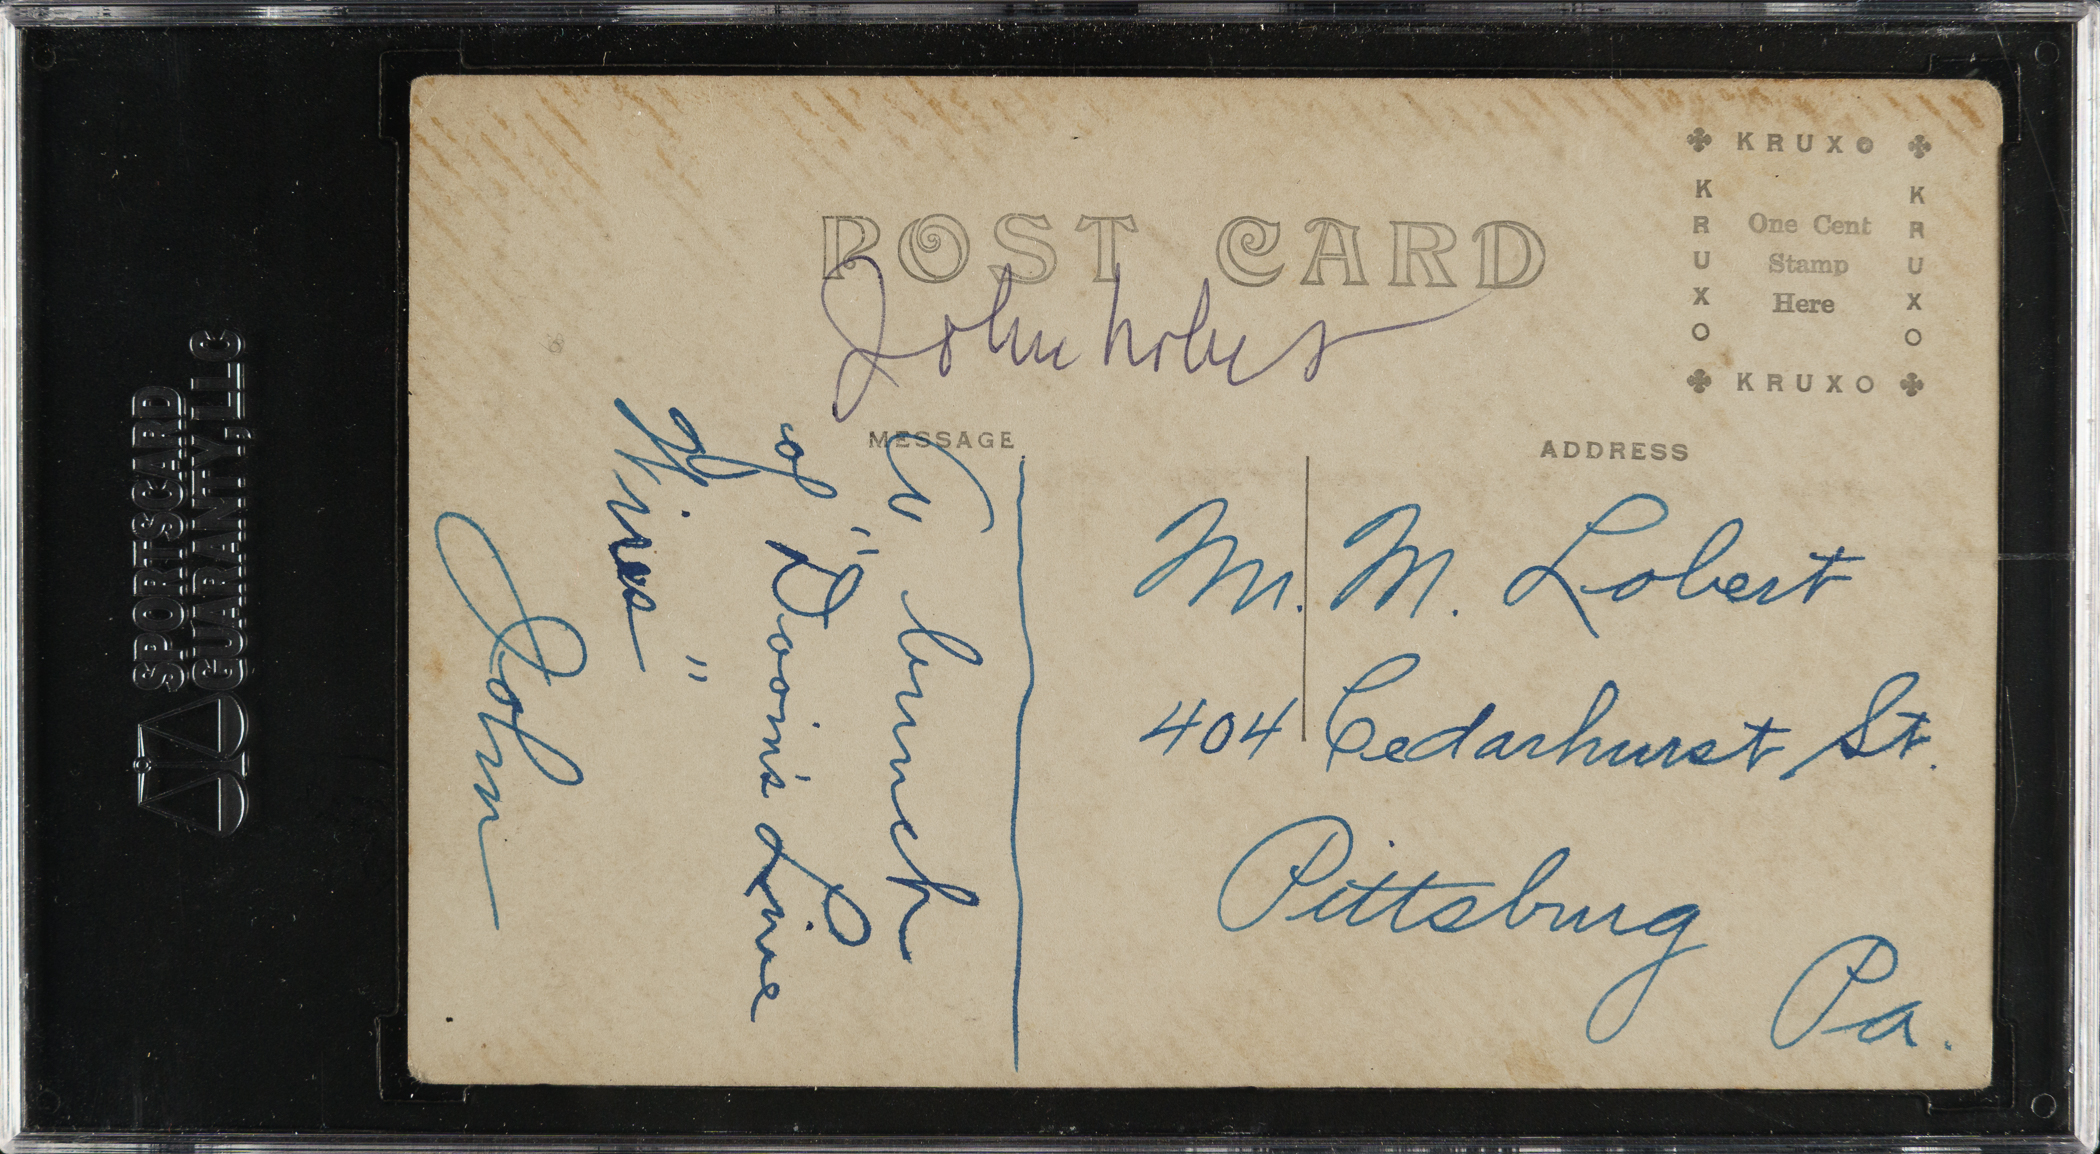 SPORTSCARD
GUARANTY, LLC
KRUXO
KRUXO
KRUXO
One Cent
Stamp
Here
KRUXO
POST CARD
John
MESSAGE
ADDRESS
A bunch
of "Dooin's Live
Wires"
John
Mr. M. Lobert
404 Cedarhurst St.
Pittsburg
Pa.